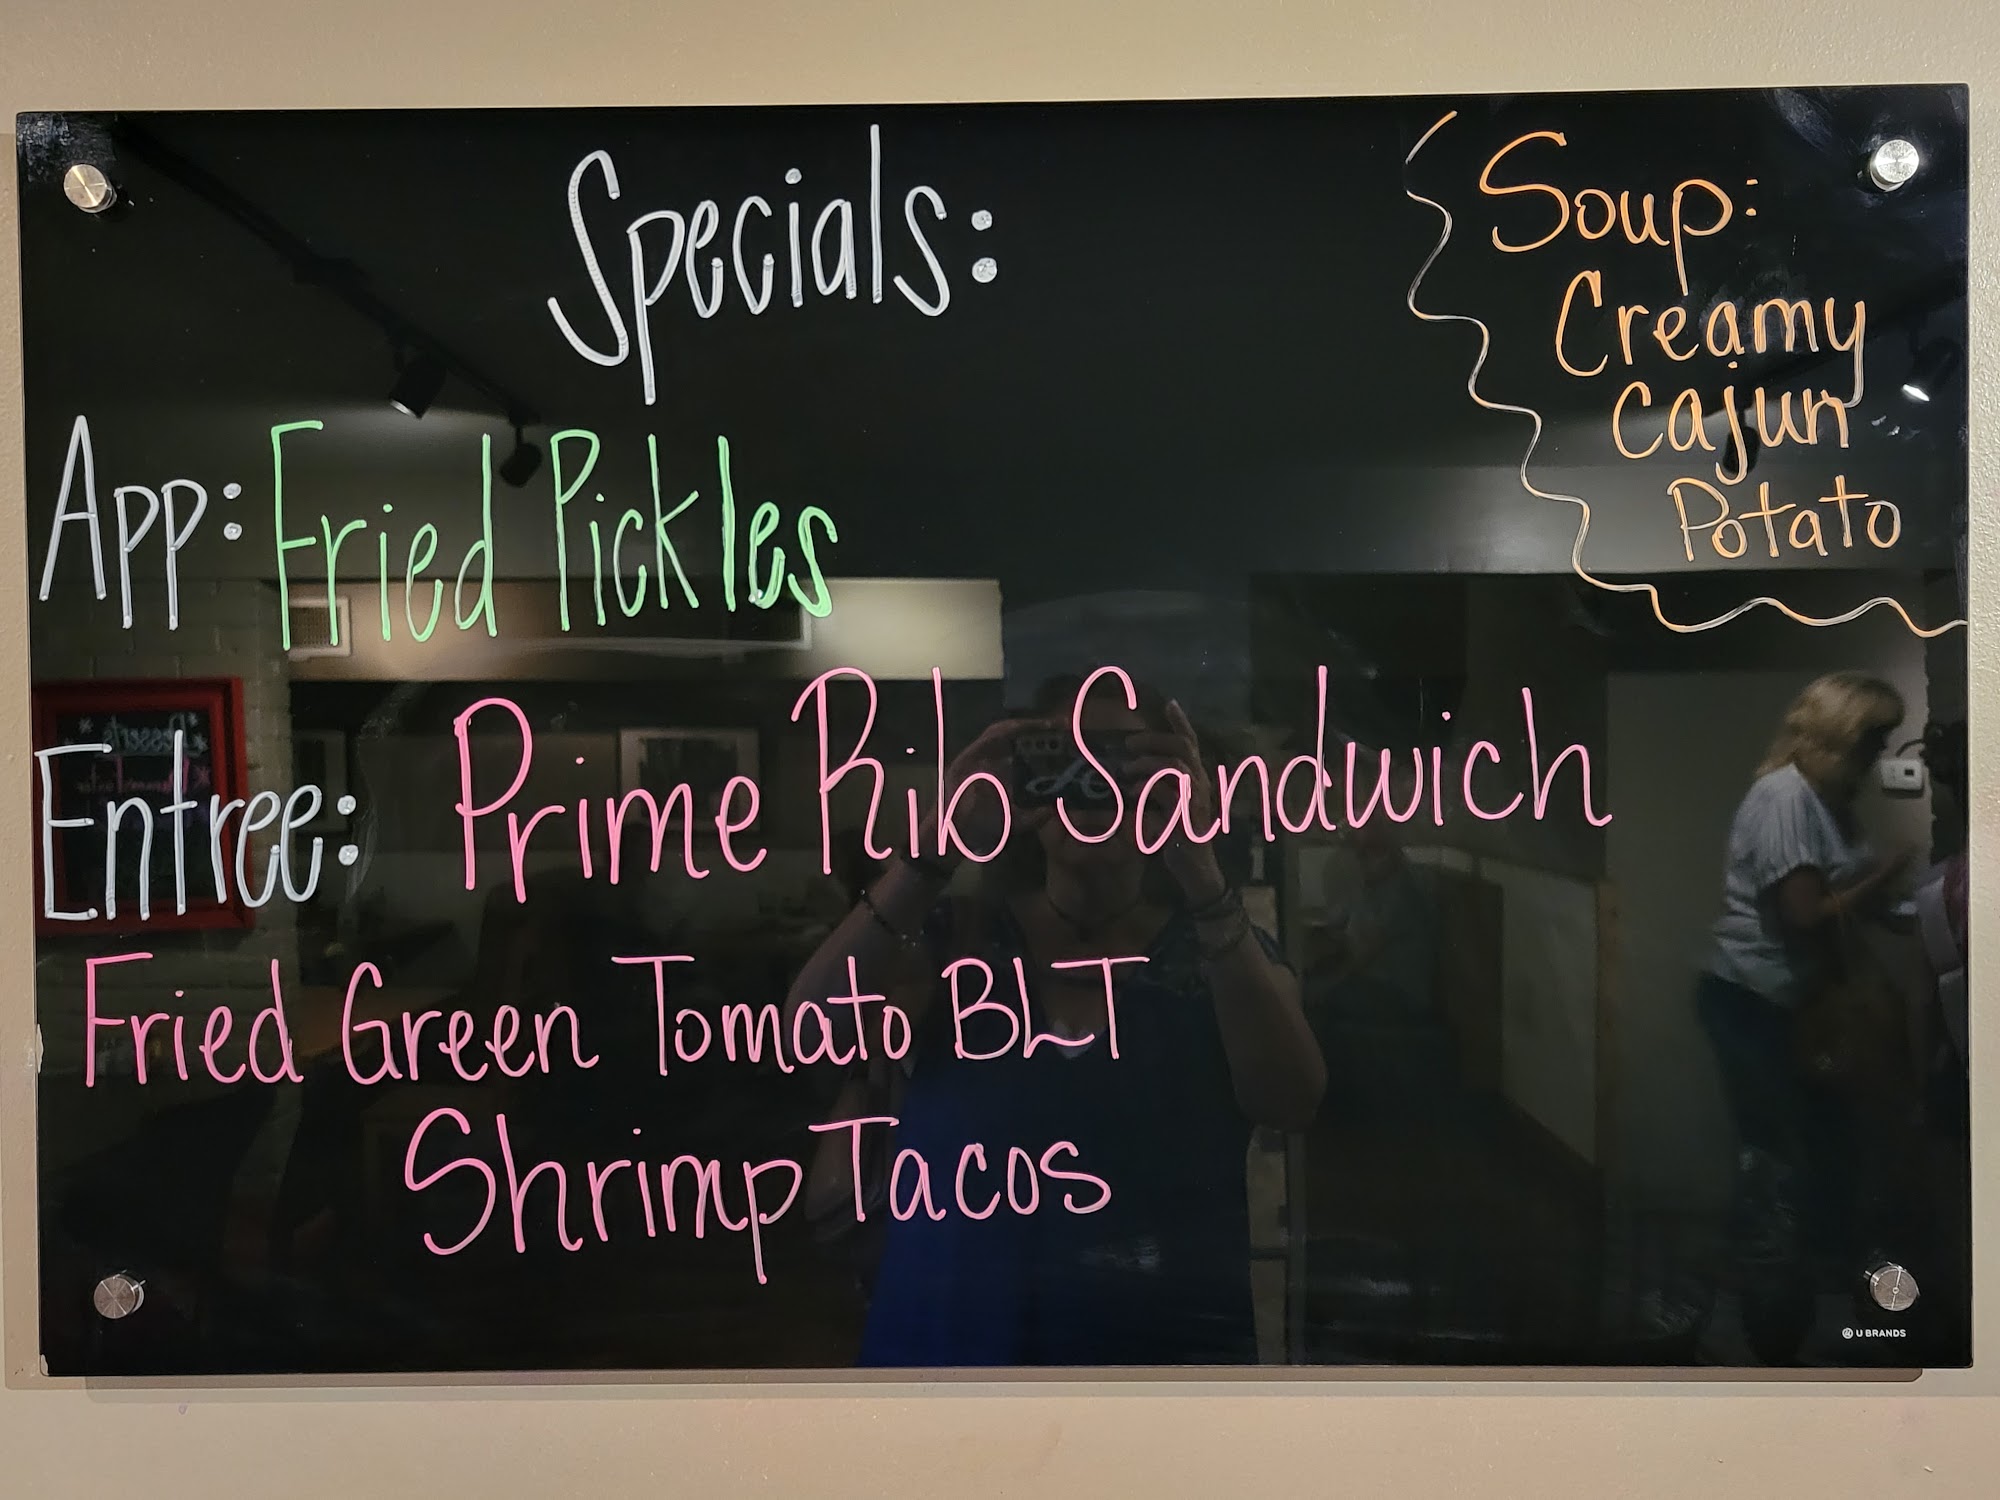 Specials:
Soup:
Creamy
Cajun
Potato
App: Fried Pickles
Entree: Prime Rib Sandwich
Fried Green Tomato BLT
Shrimp Tacos
U BRANDS